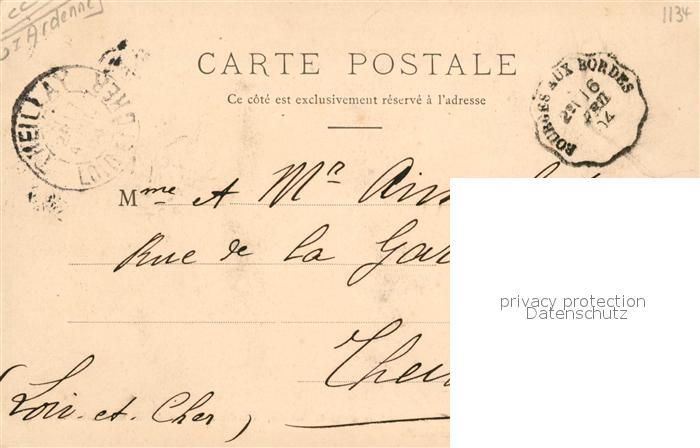 1134
CARTE POSTALE
Ce côté est exclusivement réservé à l'adresse
THEILLAY LOIR-ET-CHER
BOURGES AUX BORDES
2E 16
04
Mme et Mr
Rue de la Gar
Theil
(Loir-et-Cher)
privacy protection
Datenschutz